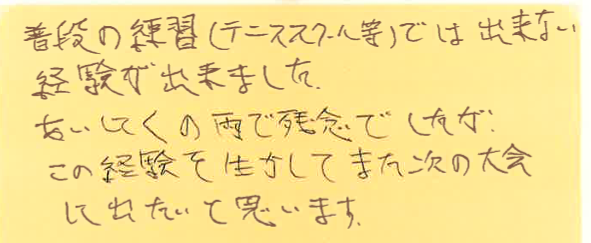 普段の練習(テニススクール等)では出来ない
経験が出来ました.
あいにくの雨で残念でしたが、
この経験を生かしてまた次の大会
に出たいと思います.